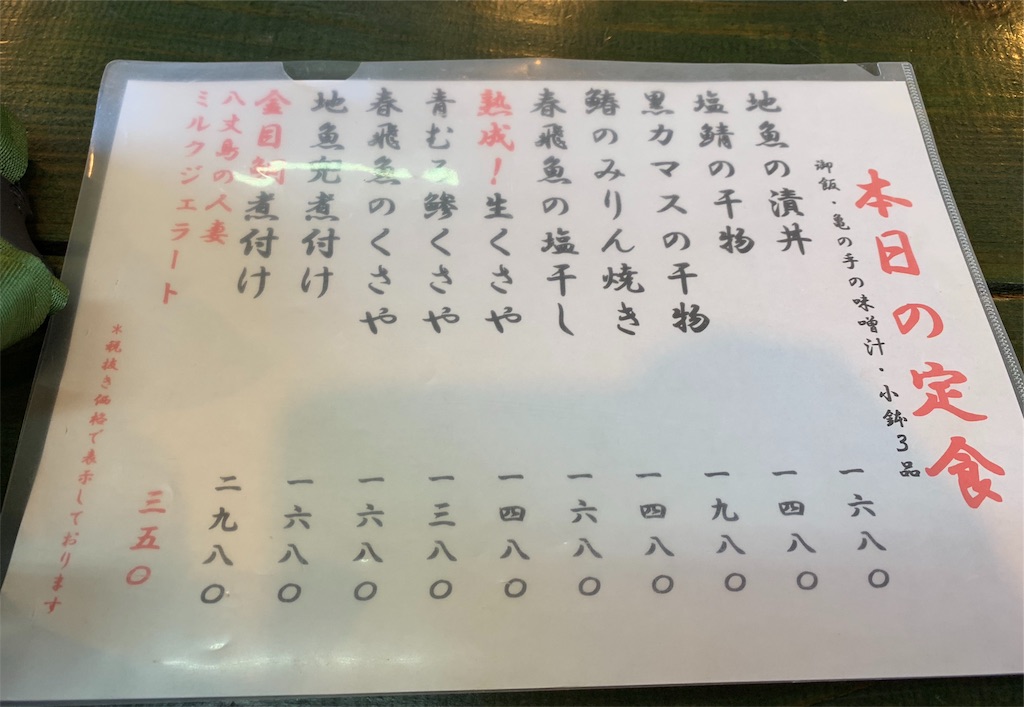 本日の定食
御飯・亀の手の味噌汁・小鉢3品
地魚の漬丼 一六八〇
塩鯖の干物 一四八〇
黒カマスの干物 一九八〇
鰆のみりん焼き 一四八〇
春飛魚の塩干し 一六八〇
熟成！生くさや 一四八〇
青むろ鰺くさや 一三八〇
春飛魚のくさや 一六八〇
地魚兜煮付け 一六八〇
金目鯛煮付け 二九八〇
八丈島の人妻
ミルクジェラート 三五〇
※税抜き価格で表示しております